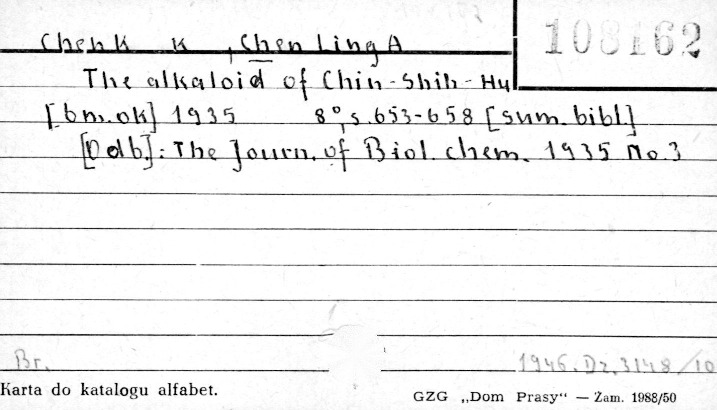 108162
Chen K K, Chen Ling A
The alkaloid of Chin-Shih-Hu
[bm. ok] 1935 8°, s. 653-658 [sum. bibl.]
[Odb]: The Journ. of Biol. chem. 1935 No. 3
Br. 1946. Dz. 3148/10
Karta do katalogu alfabet.
GZG „Dom Prasy“ — Zam. 1988/50